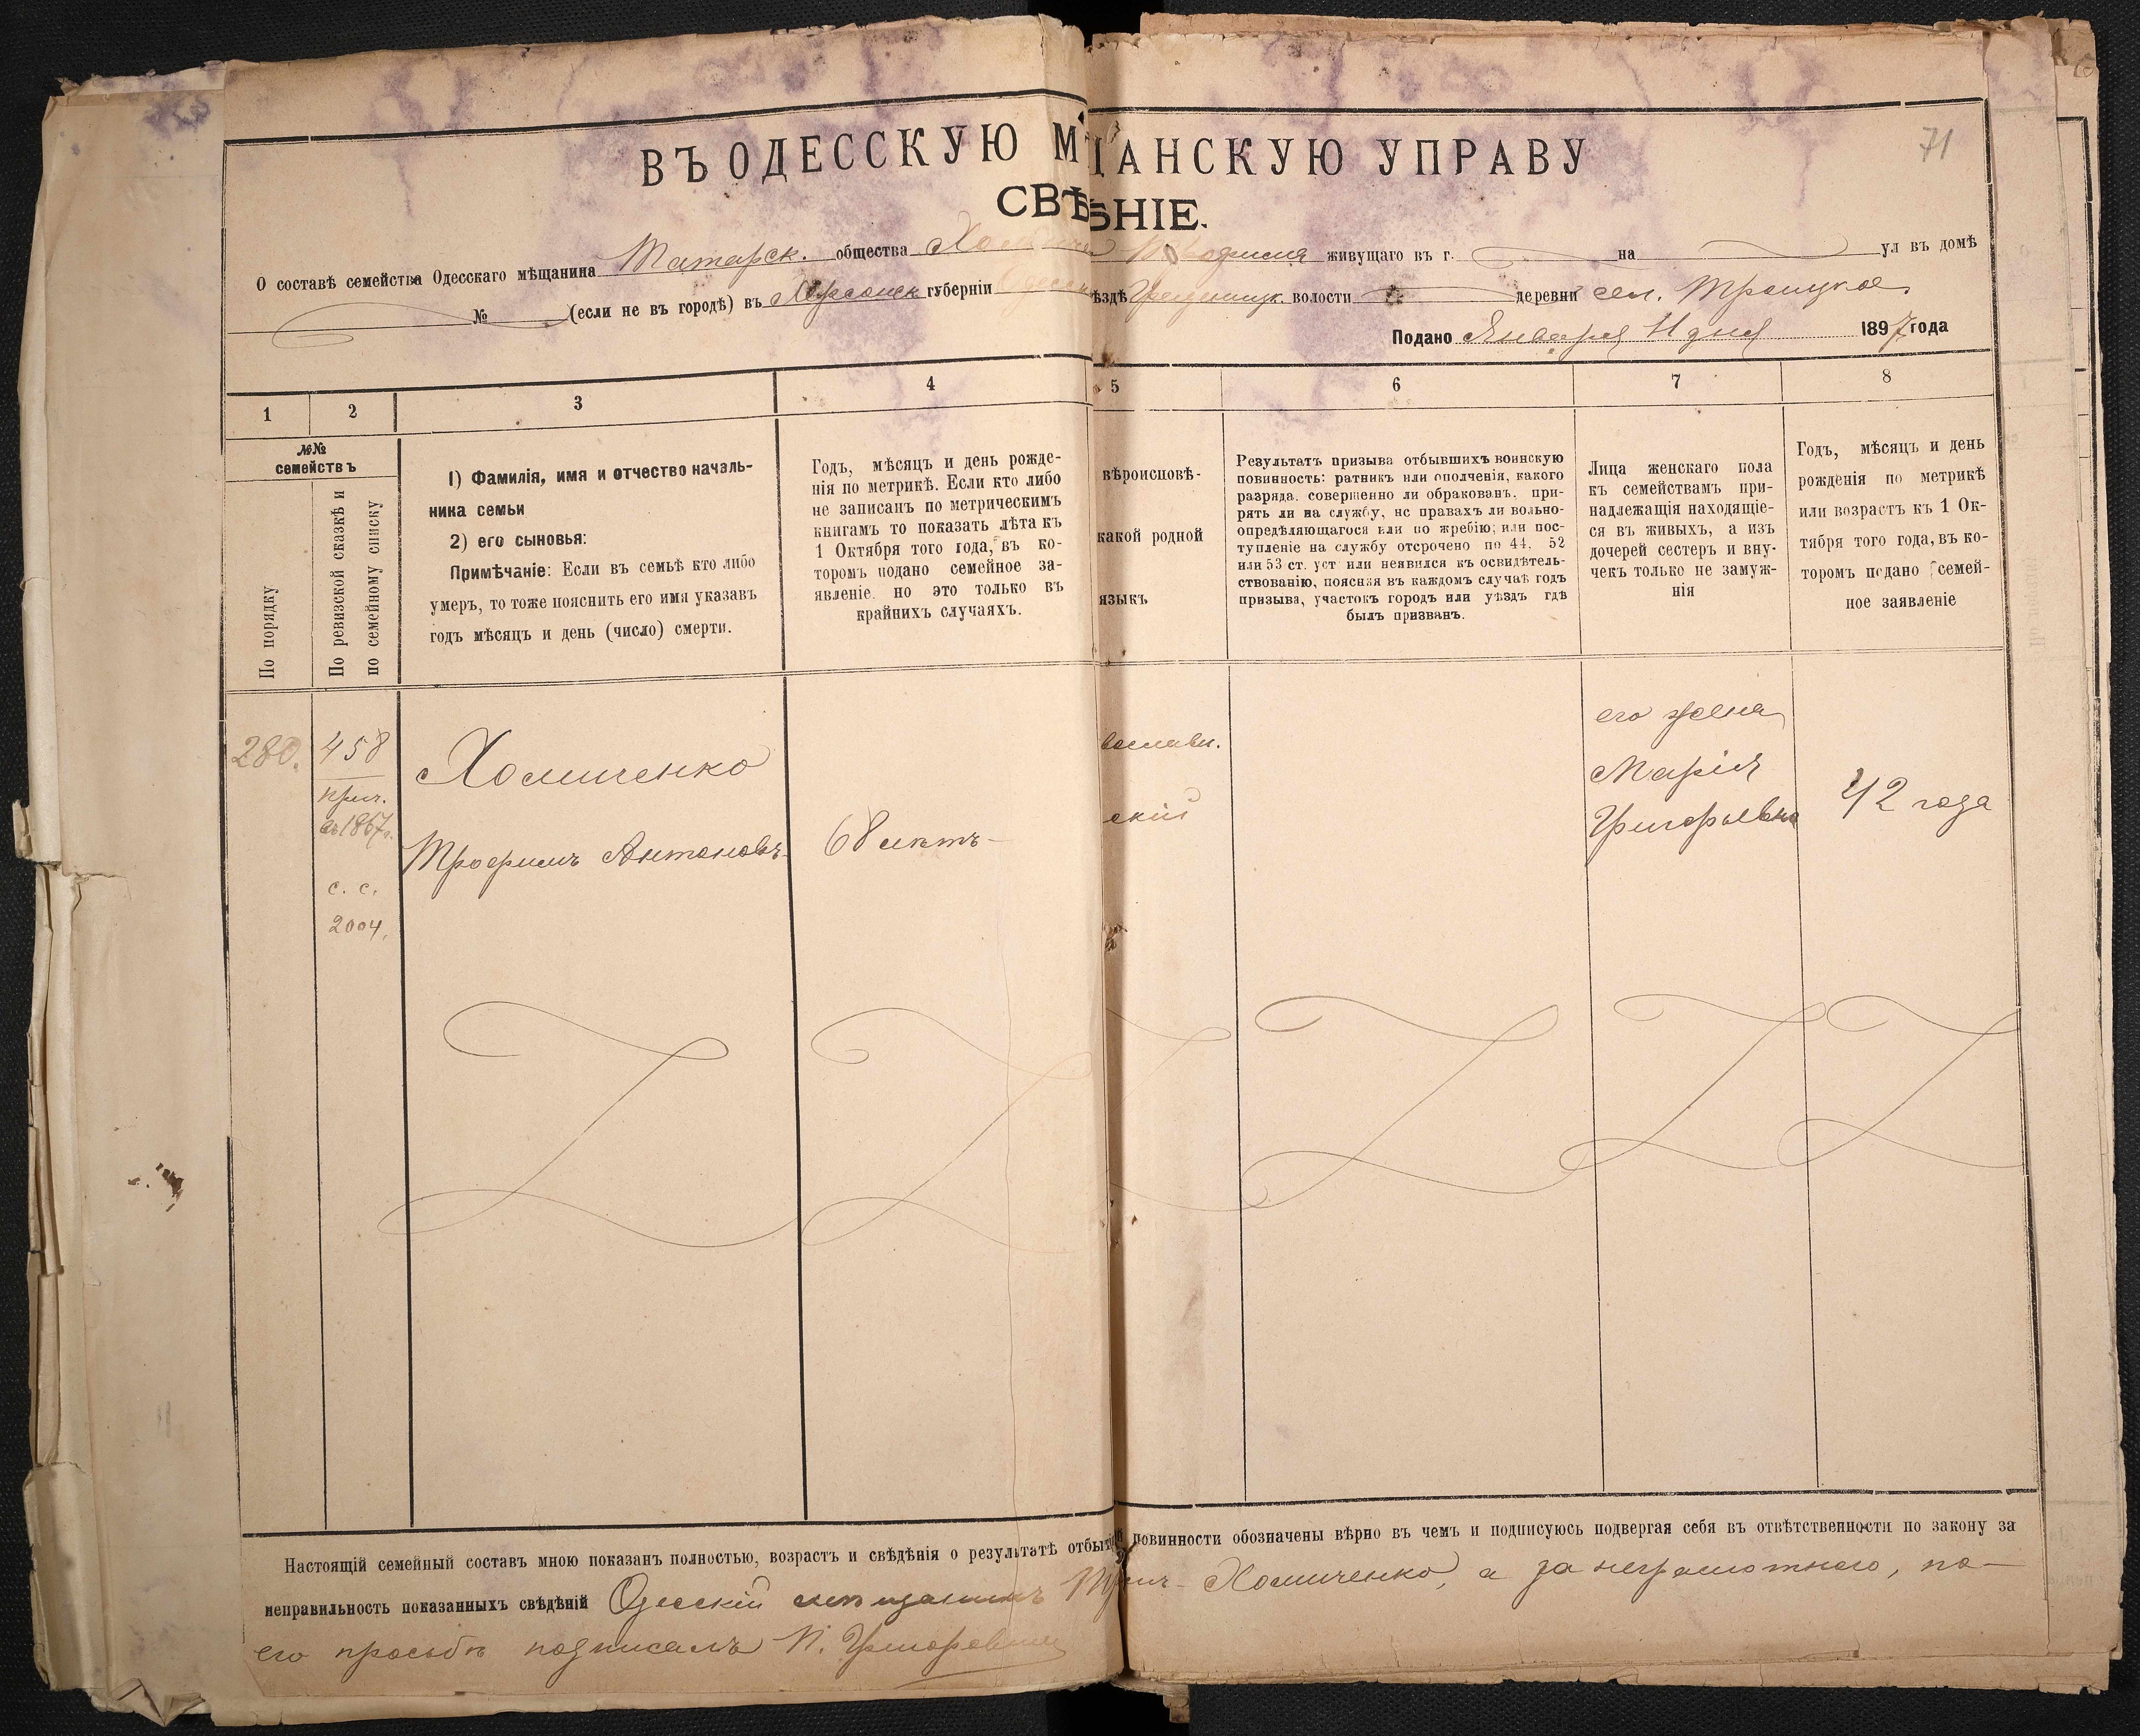 71
ВЪ ОДЕССКУЮ М ЩАНСКУЮ УПРАВУ
СВѢ ѢНІЕ.
О составѣ семейства Одесскаго мѣщанина Татарск. общества живущаго въ г. на ул въ домѣ
№ (если не въ городѣ) въ Херсонск губерніи ѣздѣ волости деревни сел. Троицкое
Подано Января 11 дня 1897 года
1 2 3 4 5 6 7 8
№№
семействъ
По порядку
По ревизской сказкѣ и
по семейному списку
1) Фамилія, имя и отчество началь-
ника семьи
2) его сыновья:
Примѣчаніе: Если въ семьѣ кто либо
умеръ, то тоже пояснить его имя указавъ
годъ мѣсяцъ и день (число) смерти.
Годъ, мѣсяцъ и день рожде-
нія по метрикѣ. Если кто либо
не записанъ по метрическимъ
книгамъ то показать лѣта къ
1 Октября того года, въ ко-
торомъ подано семейное за-
явленіе. но это только въ
крайнихъ случаяхъ.
вѣроисповѣ-
какой родной
языкъ
Результатъ призыва отбывшихъ воинскую
повинность: ратникъ или ополченія, какого
разряда. совершенно ли обракованъ. при-
рятъ ли на службу, нс правахъ ли вольно-
опредѣляющагося или по жребію; или пос-
тупленіе на службу отсрочено по 44. 52
или 53 ст. уст или неявился къ освидѣтель-
ствованію, поясняя въ каждомъ случаѣ годъ
призыва, участокъ городъ или уѣздъ гдѣ
былъ призванъ.
Лица женскаго пола
къ семействамъ при-
надлежащія находящіе-
ся въ живыхъ, а изъ
дочерей сестеръ и вну-
чекъ только не замуж-
нія
Годъ, мѣсяцъ и день
рожденія по метрикѣ
или возрастъ къ 1 Ок-
тября того года, въ ко-
торомъ подано семей-
ное заявленіе
280.
458
прич.
въ 1867г.
с. с.
2004.
Хомиченко
Трофимъ Антоновъ
68 лѣтъ
вославн.
скій
его жена
Марія
Григорьевна
42 года
Настоящій семейный составъ мною показанъ полностью, возрастъ и свѣдѣнія о результатѣ отбыті повинности обозначены вѣрно въ чемъ и подписуюсь подвергая себя въ отвѣтственности по закону за
неправильность показанныхъ свѣдѣній Одесскій мѣщанинъ Хомиченко, а за неграмотнаго, по
его просьбѣ подписалъ